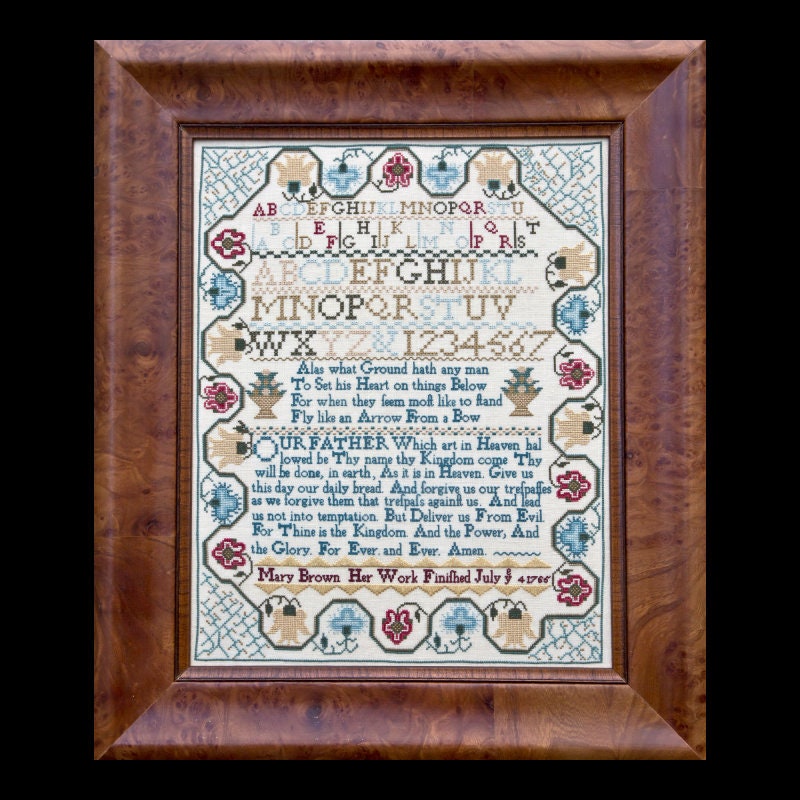 ABCDEFGHIJKLMNOPQRSTU
ABCDEFGHIJKLMNOPQRST
ABCDEFGHIJKL
MNOPQRSTUV
WXYZ&1234567
Alas what Ground hath any man
To Set his Heart on things Below
For when they ſeem moſt like to ſtand
Fly like an Arrow From a Bow
OUR FATHER Which art in Heaven hal
lowed be Thy name thy Kingdom come Thy
will be done, in earth, As it is in Heaven. Give us
this day our daily bread. And forgive us our treſpaſſes
as we forgive them that treſpaſs againſt us. And lead
us not into temptation. But Deliver us From Evil.
For Thine is the Kingdom. And the Power, And
the Glory. For Ever. and Ever. Amen.
Mary Brown Her Work Finiſhed July yᵉ 4 1766